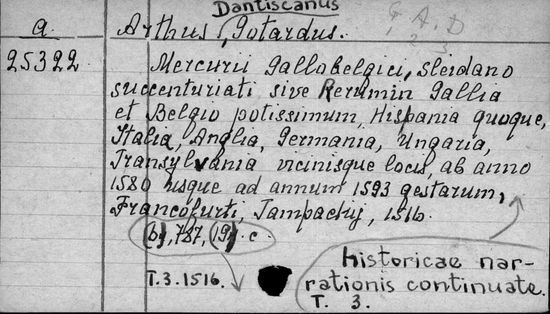 Dantiscanus
a.
Arthus, Gotardus.
G, A. D
1, 2 3
25322
Mercurii Gallobelgici, Sleidano
succenturiati sive Rerum in Gallia
et Belgio potissimum, Hispania quoque,
Italia, Anglia, Germania, Ungaria,
Transylvania vicinisque locis, ab anno
1580 usque ad annum 1593 gestarum,
Francofurti, Tampachij, 1516.
(6), 787, (19) c.
T.3.1516.
historicae nar-
rationis continuate.
T. 3.